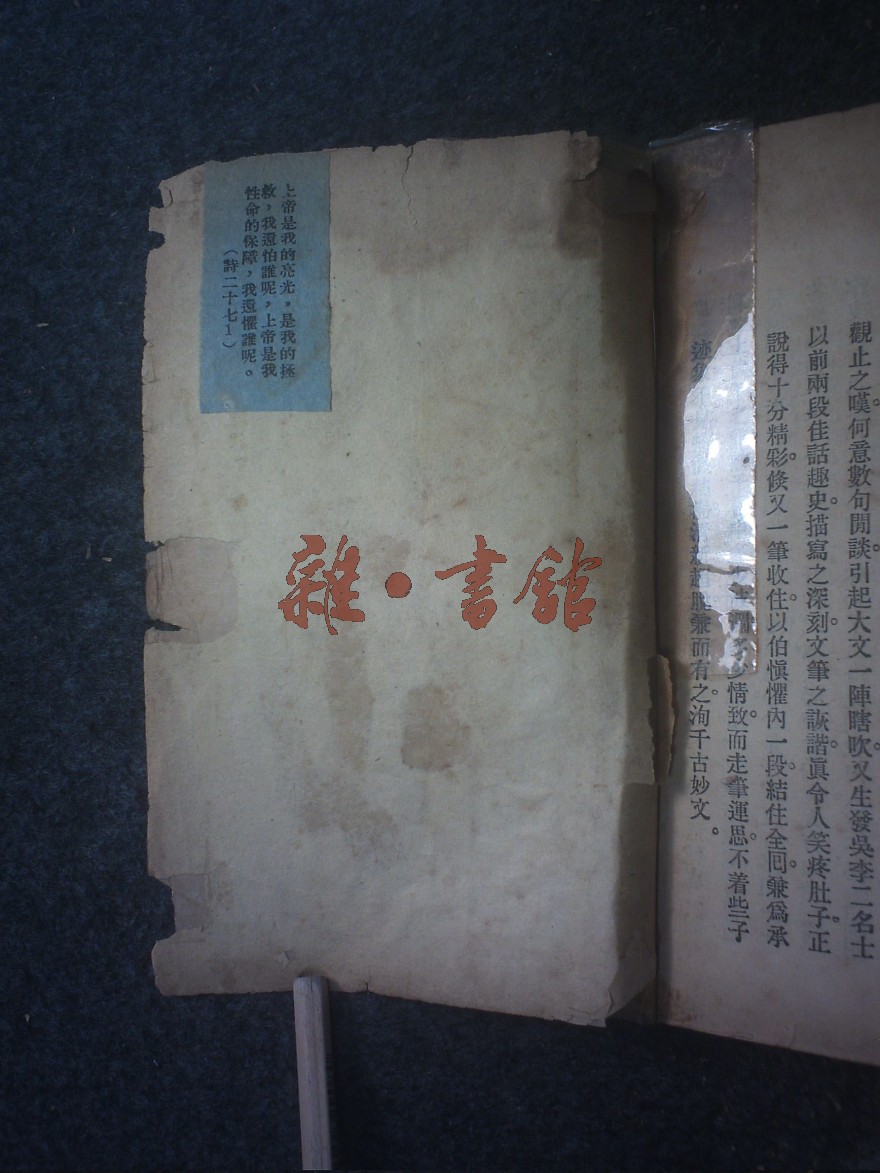 觀止之嘆何意數句閒談。引起大文一陣瞎吹。又生發吳李二名士
以前兩段佳話趣史。描寫之深刻。文筆之詼諧。眞令人笑疼肚子。正
說得十分精彩。倐又一筆收住。以伯愼懼內一段。結住全囘。兼爲承
情致。而走筆運思。不着些子
兼而有之。洵千古妙文。
上帝是我的亮光，是我的拯
救，我還怕誰呢，上帝是我
性命的保障，我還懼誰呢。
（詩二十七1）
雜·書館